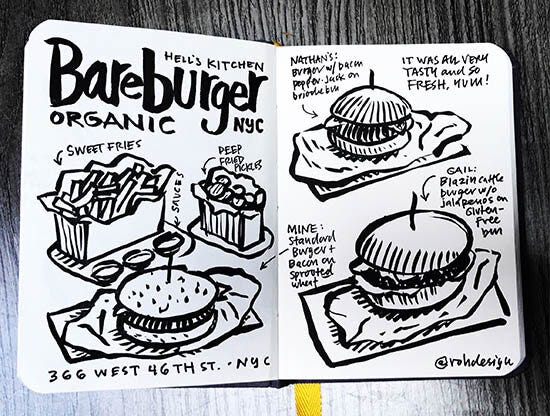 HELL'S KITCHEN
Bareburger
ORGANIC NYC
SWEET FRIES
DEEP
FRIED
PICKLES
SAUCES
MINE:
Standard
Burger +
Bacon on
sprouted
wheat
366 WEST 46TH ST. · NYC
NATHAN'S:
Burger w/ bacon
pepper jack on
brioche bun
IT WAS ALL VERY
TASTY and SO
FRESH, YUM!
GAIL:
Blazin cattle
burger w/o
jalapenos on
Gluten-
free
bun
@rohdesign